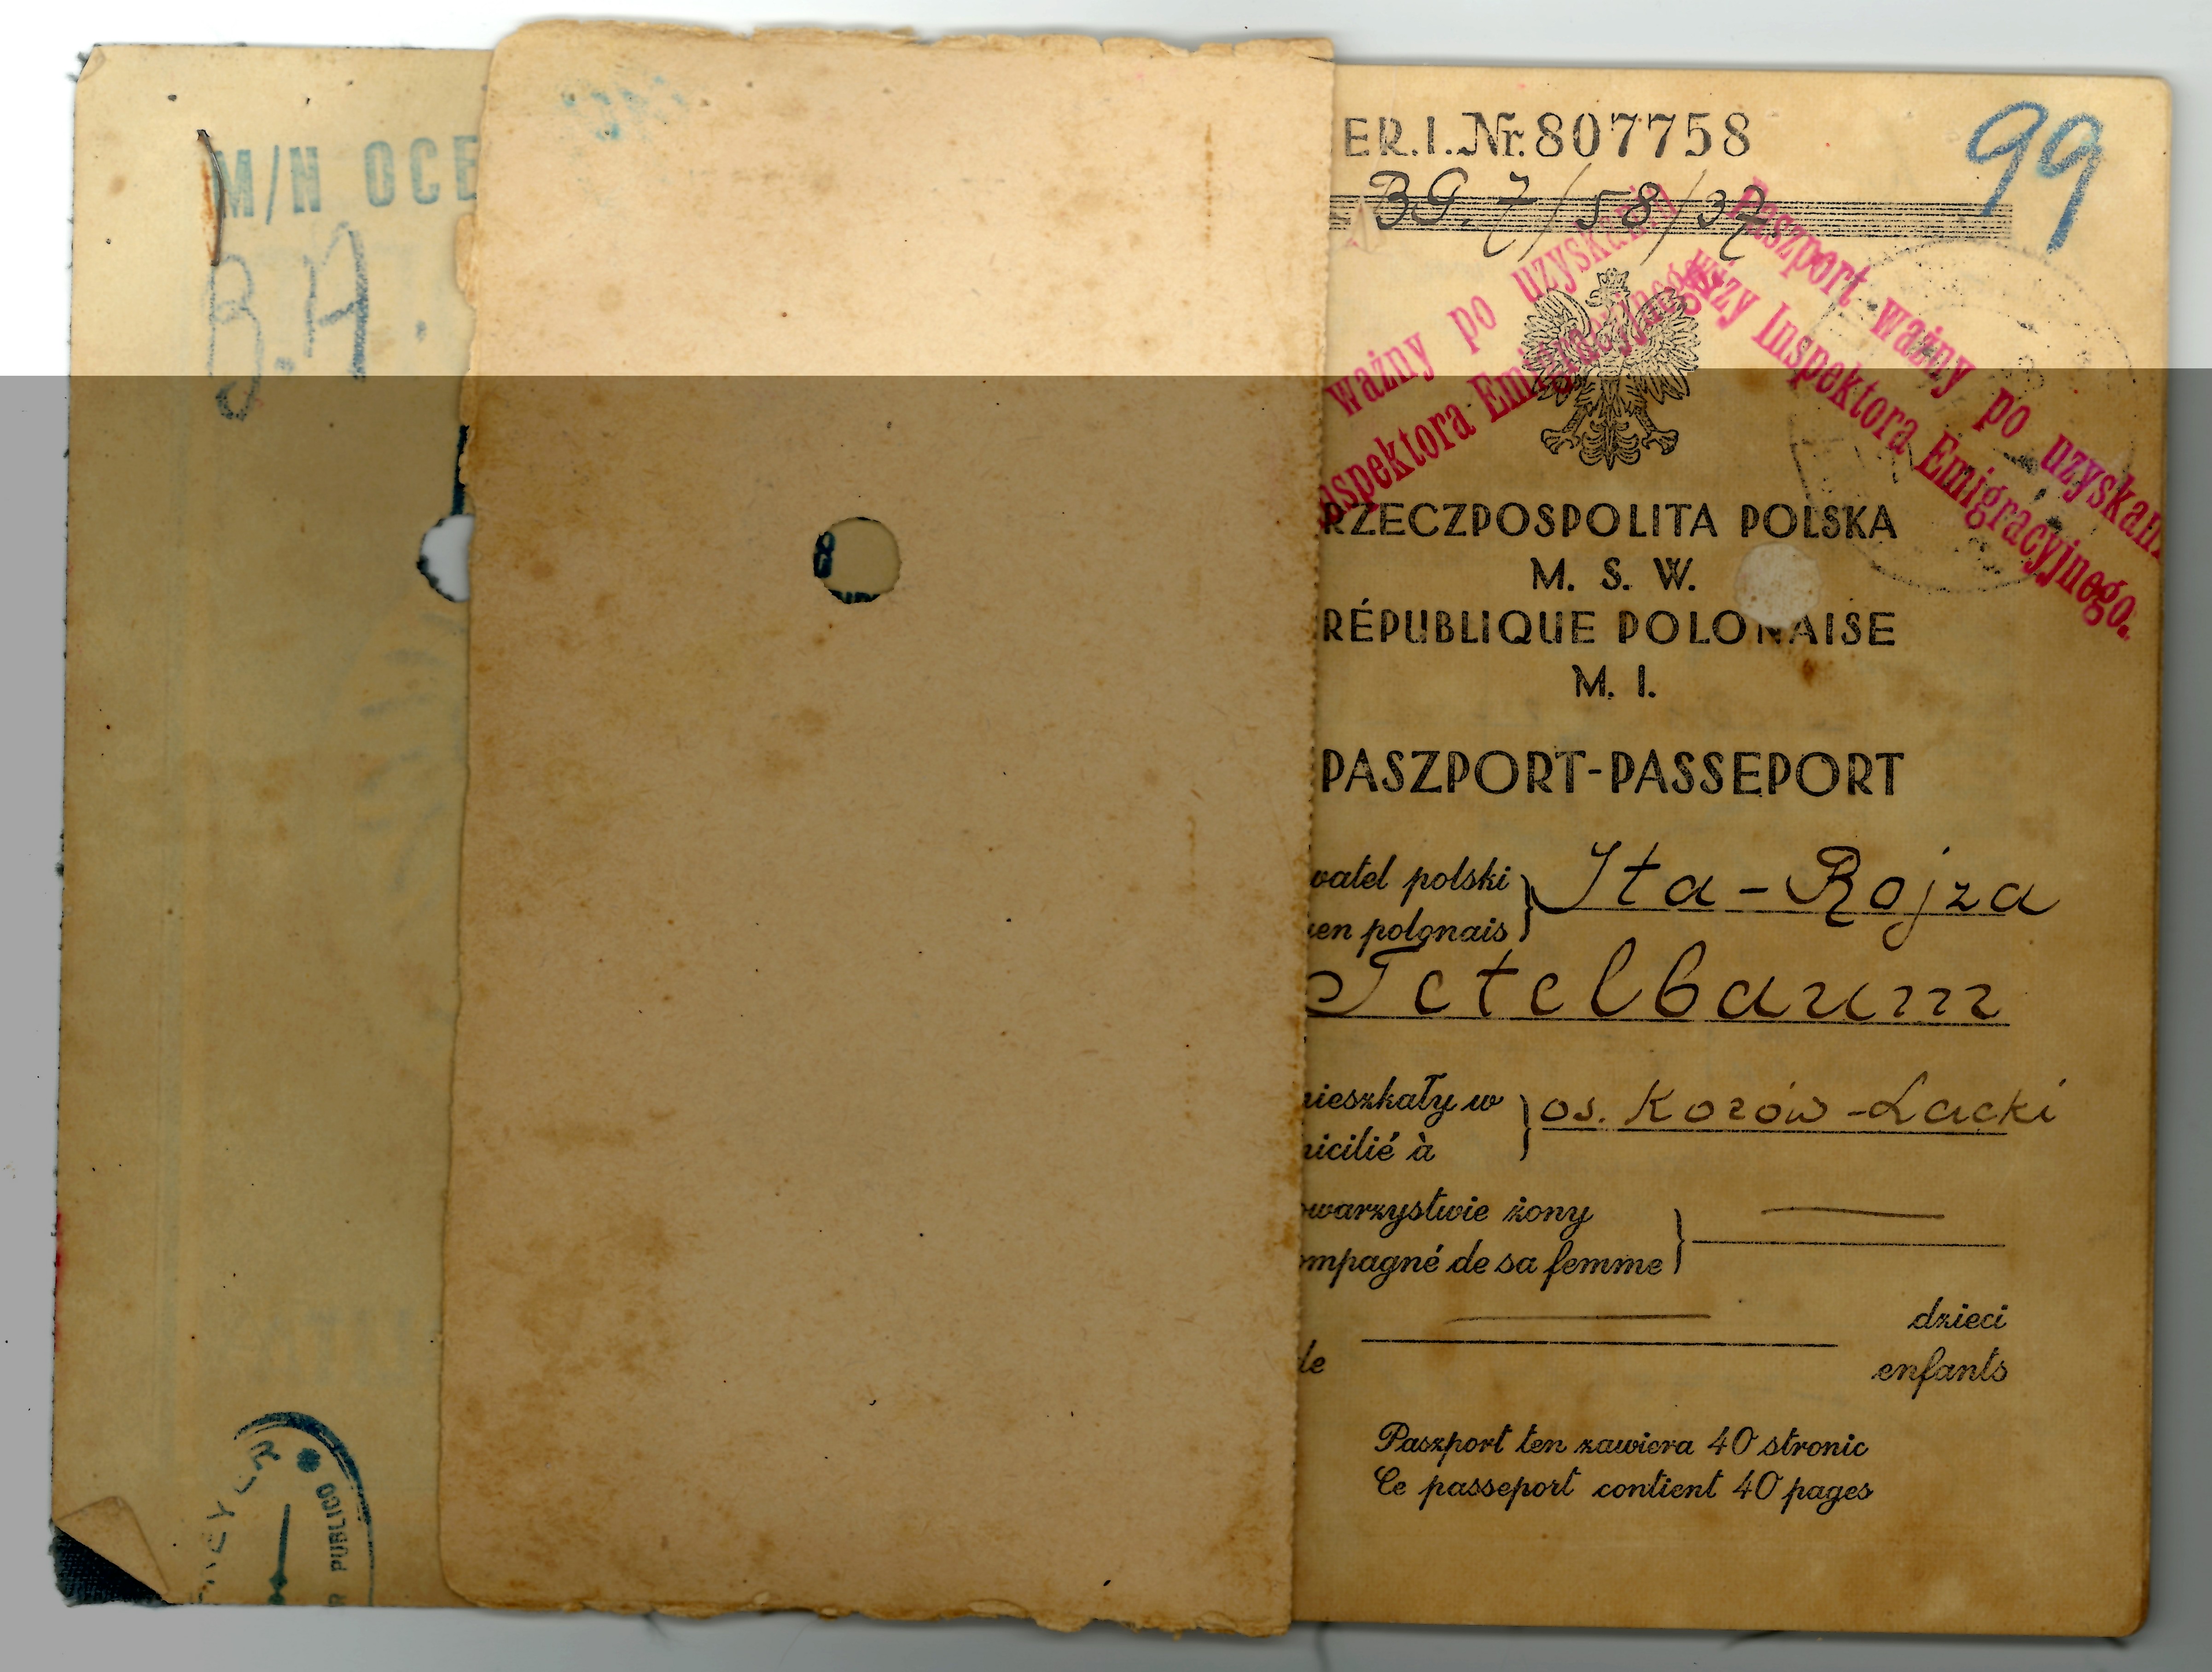 M/N OCE
B.A.
PUBLICO
ER. I. Nr. 807758
99
BG. 7/58/37.
ważny po uzyskaniu
Inspektora Emigracyjnego
Paszport ważny po uzyskani
wizy Inspektora Emigracyjnego.
RZECZPOSPOLITA POLSKA
M. S. W.
RÉPUBLIQUE POLONAISE
M. I.
PASZPORT-PASSEPORT
watel polski
en polonais
Ita-Rojza
Tetelbaum
mieszkały w
micilié à
os. Kozów-Lacki
owarzystwie żony
ompagné de sa femme
dzieci
de
enfants
Paszport ten zawiera 40 stronic
Ce passeport contient 40 pages